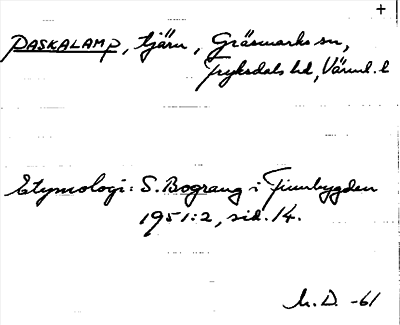 +
PASKALAMP, tjärn, Gräsmarks sn,
Fryksdals hd, Värml. l
Etymologi: S. Bograng i Finnbygden
1951:2, sid. 14.
M. D. -61